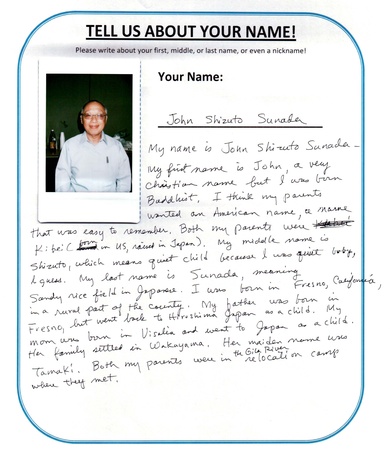 TELL US ABOUT YOUR NAME!
Please write about your first, middle, or last name, or even a nickname!
Your Name:
John Shizuto Sunada
My name is John Shizuto Sunada -
My first name is John, a very
christian name but I was born
Buddhist. I think my parents
wanted an American name, a name
that was easy to remember. Both my parents were
Kibei (born in US, raised in Japan). My middle name is
Shizuto, which means quiet child because I was quiet baby,
I guess. My last name is Sunada, meaning
Sandy rice field in Japanese. I was born in Fresno, California,
in a rural part of the County. My father was born in
Fresno, but went back to Hiroshima Japan as a child. My
mom was born in Visalia and went to Japan as a child.
Her family settled in Wakayama. Her maiden name was
Tamaki. Both my parents were in the Gila River relocation camp
where they met.